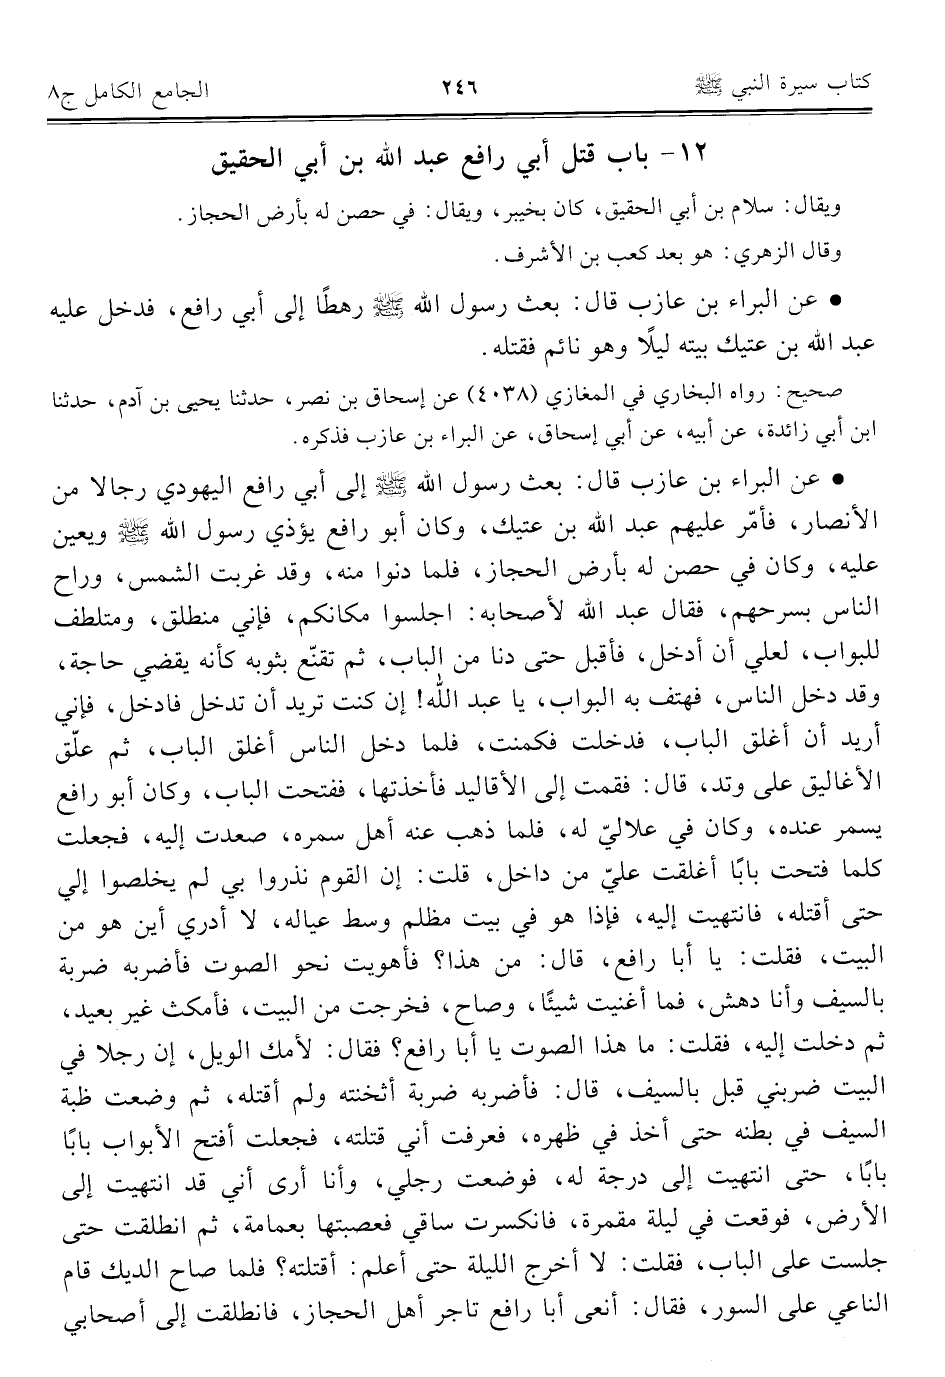 كتاب سيرة النبي ﷺ ٢٤٦ الجامع الكامل ج٨
١٢- باب قتل أبي رافع عبد الله بن أبي الحقيق
ويقال: سلام بن أبي الحقيق، كان بخيبر، ويقال: في حصن له بأرض الحجاز.
وقال الزهري: هو بعد كعب بن الأشرف.
• عن البراء بن عازب قال: بعث رسول الله ﷺ رهطًا إلى أبي رافع، فدخل عليه
عبد الله بن عتيك بيته ليلًا وهو نائم فقتله.
صحيح: رواه البخاري في المغازي (٤٠٣٨) عن إسحاق بن نصر، حدثنا يحيى بن آدم، حدثنا
ابن أبي زائدة، عن أبيه، عن أبي إسحاق، عن البراء بن عازب فذكره.
• عن البراء بن عازب قال: بعث رسول الله ﷺ إلى أبي رافع اليهودي رجالا من
الأنصار، فأمّر عليهم عبد الله بن عتيك، وكان أبو رافع يؤذي رسول الله ﷺ ويعين
عليه، وكان في حصن له بأرض الحجاز، فلما دنوا منه، وقد غربت الشمس، وراح
الناس بسرحهم، فقال عبد الله لأصحابه: اجلسوا مكانكم، فإني منطلق، ومتلطف
للبواب، لعلي أن أدخل، فأقبل حتى دنا من الباب، ثم تقنّع بثوبه كأنه يقضي حاجة،
وقد دخل الناس، فهتف به البواب، يا عبد الله! إن كنت تريد أن تدخل فادخل، فإني
أريد أن أغلق الباب، فدخلت فكمنت، فلما دخل الناس أغلق الباب، ثم علّق
الأغاليق على وتد، قال: فقمت إلى الأقاليد فأخذتها، ففتحت الباب، وكان أبو رافع
يسمر عنده، وكان في علاليّ له، فلما ذهب عنه أهل سمره، صعدت إليه، فجعلت
كلما فتحت بابًا أغلقت عليّ من داخل، قلت: إن القوم نذروا بي لم يخلصوا إلي
حتى أقتله، فانتهيت إليه، فإذا هو في بيت مظلم وسط عياله، لا أدري أين هو من
البيت، فقلت: يا أبا رافع، قال: من هذا؟ فأهويت نحو الصوت فأضربه ضربة
بالسيف وأنا دهش، فما أغنيت شيئًا، وصاح، فخرجت من البيت، فأمكث غير بعيد،
ثم دخلت إليه، فقلت: ما هذا الصوت يا أبا رافع؟ فقال: لأمك الويل، إن رجلا في
البيت ضربني قبل بالسيف، قال: فأضربه ضربة أثخنته ولم أقتله، ثم وضعت ظبة
السيف في بطنه حتى أخذ في ظهره، فعرفت أني قتلته، فجعلت أفتح الأبواب بابًا
بابًا، حتى انتهيت إلى درجة له، فوضعت رجلي، وأنا أرى أني قد انتهيت إلى
الأرض، فوقعت في ليلة مقمرة، فانكسرت ساقي فعصبتها بعمامة، ثم انطلقت حتى
جلست على الباب، فقلت: لا أخرج الليلة حتى أعلم: أقتلته؟ فلما صاح الديك قام
الناعي على السور، فقال: أنعى أبا رافع تاجر أهل الحجاز، فانطلقت إلى أصحابي